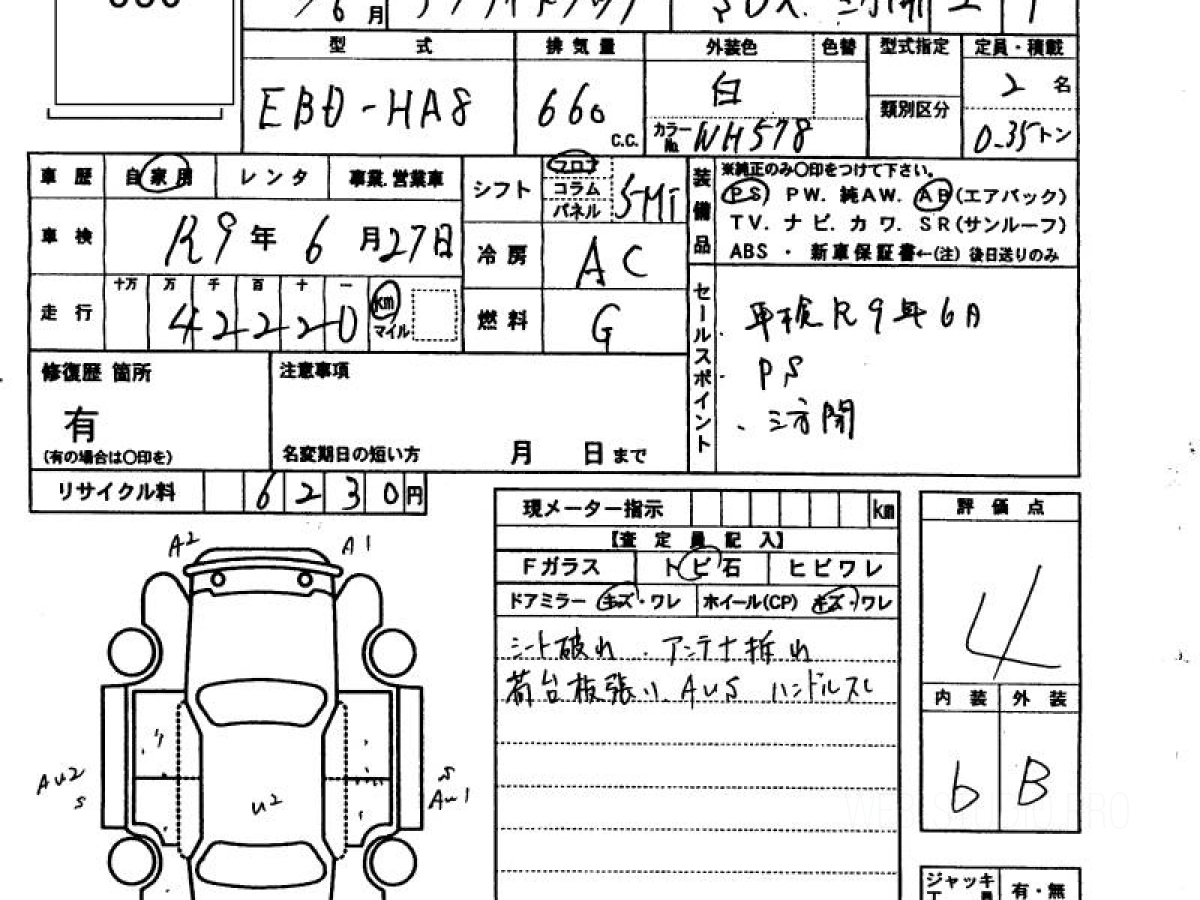 6月
三方開
型 式
排 気 量
外装色
色替
型式指定
定員・積載
EBD-HA8
660
C.C.
白
2 名
類別区分
カラー№ NH578
0.35トン
車 歴
自家用
レンタ
事業.営業車
シフト
フロア
コラム
パネル
5MT
装備品
※純正のみ〇印をつけて下さい。
PS) PW. 純AW. AB(エアバック)
TV. ナビ. カワ. SR(サンルーフ)
ABS ・ 新車保証書←(注) 後日送りのみ
車 検
R9年 6月27日
冷 房
AC
走 行
十万 万 千 百 十 一
42220
km
マイル
燃 料
G
セールスポイント
車検R9年6月
PS
・三方開
修復歴 箇所
有
(有の場合は〇印を)
注意事項
名変期日の短い方 月 日まで
リサイクル料 6230円
現メーター指示 km
【査 定 員 記 入】
Fガラス
トビ石
ヒビワレ
ドアミラー キズ・ワレ
ホイール(CP) キズ・ワレ
シート破れ.アンテナ折れ
荷台板張り.AUS ハンドルスレ
評 価 点
4
内 装
外 装
b
B
ジャッキ
有・無
A2
A1
AU2
S
U2
S
AU1